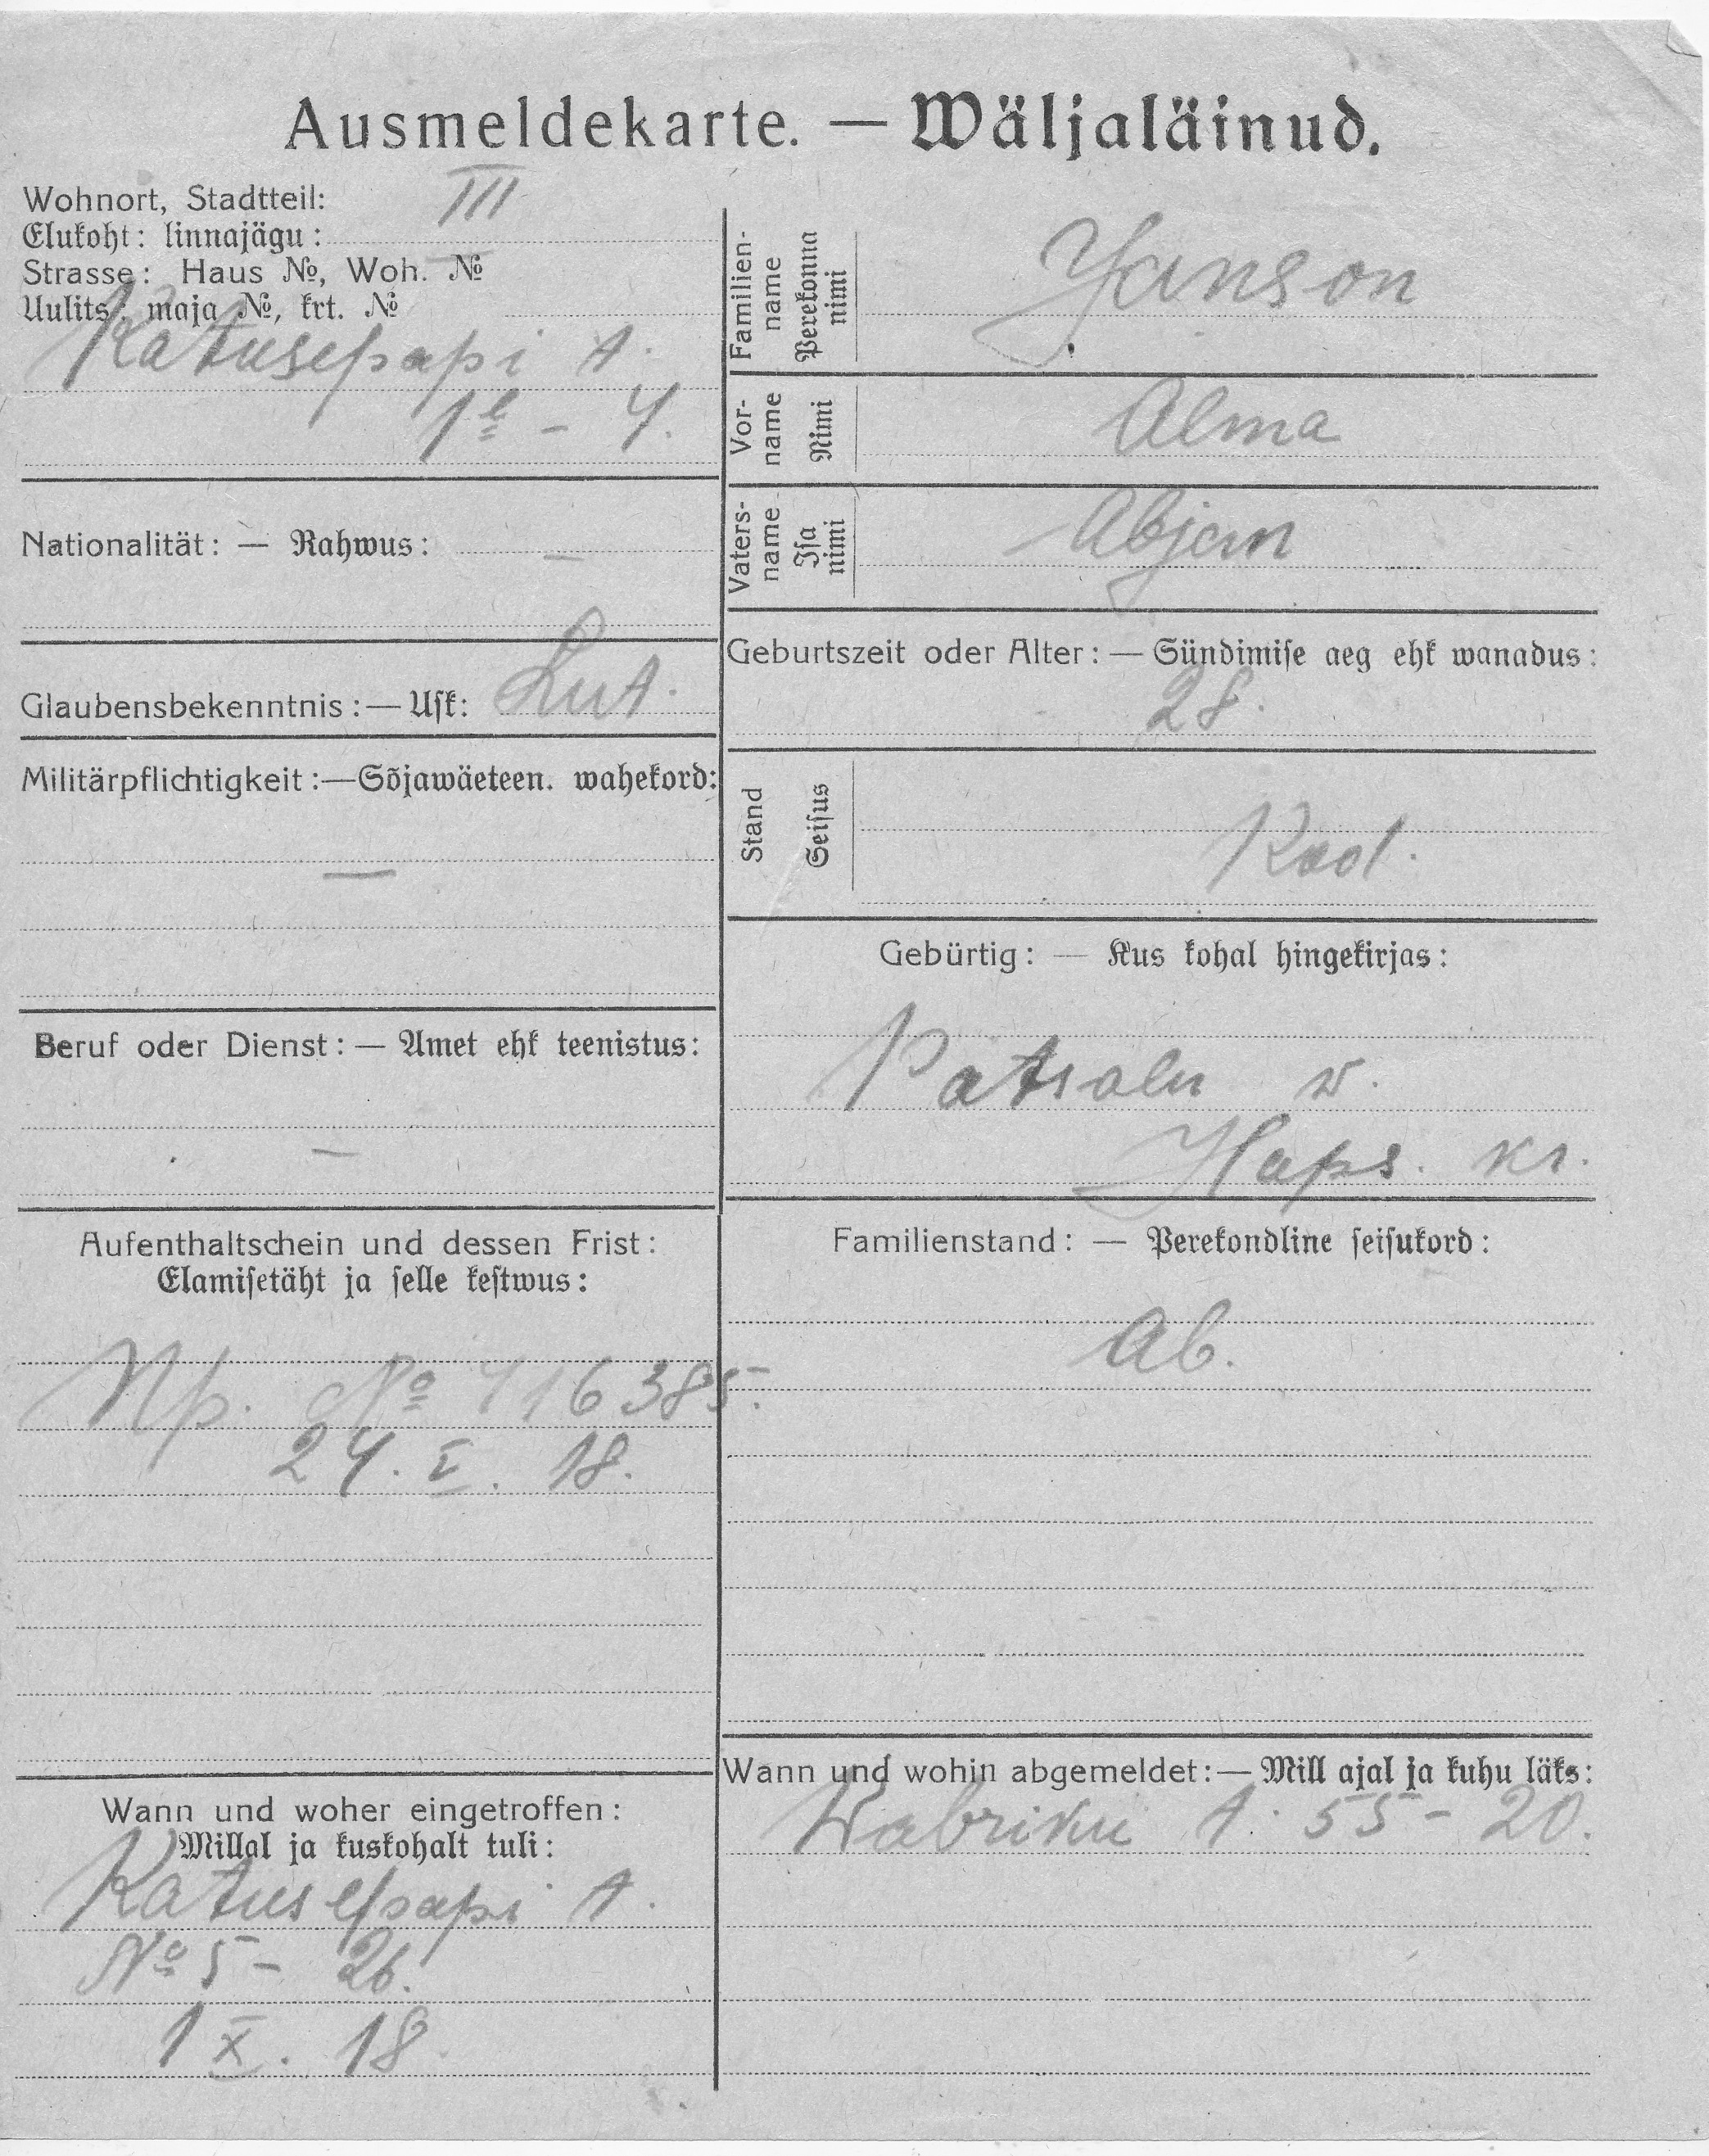 Ausmeldekarte. — Wäljaläinud.
Wohnort, Stadtteil: III
Elukoht: linnajägu:
Strasse: Haus №, Woh. №
Uulits: maja №, krt. №
Katusepapi t.
1ᵉ - 4.
Nationalität: — Rahwus: —
Glaubensbekenntnis: — Usk: Lut.
Militärpflichtigkeit: — Sõjawäeteen. wahekord:
—
Beruf oder Dienst: — Amet ehk teenistus:
—
Aufenthaltschein und dessen Frist:
Elamisetäht ja selle kestwus:
Np. № 416385.
24. V. 18.
Wann und woher eingetroffen:
Millal ja kuskohalt tuli:
Katusepapi t.
№ 5 - 26.
1 X. 18.
Familienname Perekonna nimi Janson
Vorname Nimi Alma
Vatersname Isa nimi
Geburtszeit oder Alter: — Sündimise aeg ehk wanadus:
28.
Stand Seisus
Gebürtig: — Kus kohal hingekirjas:
Patsalu w.
Haps. kr.
Familienstand: — Perekondline seisukord:
ab.
Wann und wohin abgemeldet: — Mill ajal ja kuhu läks:
Wabriku t. 55 - 20.